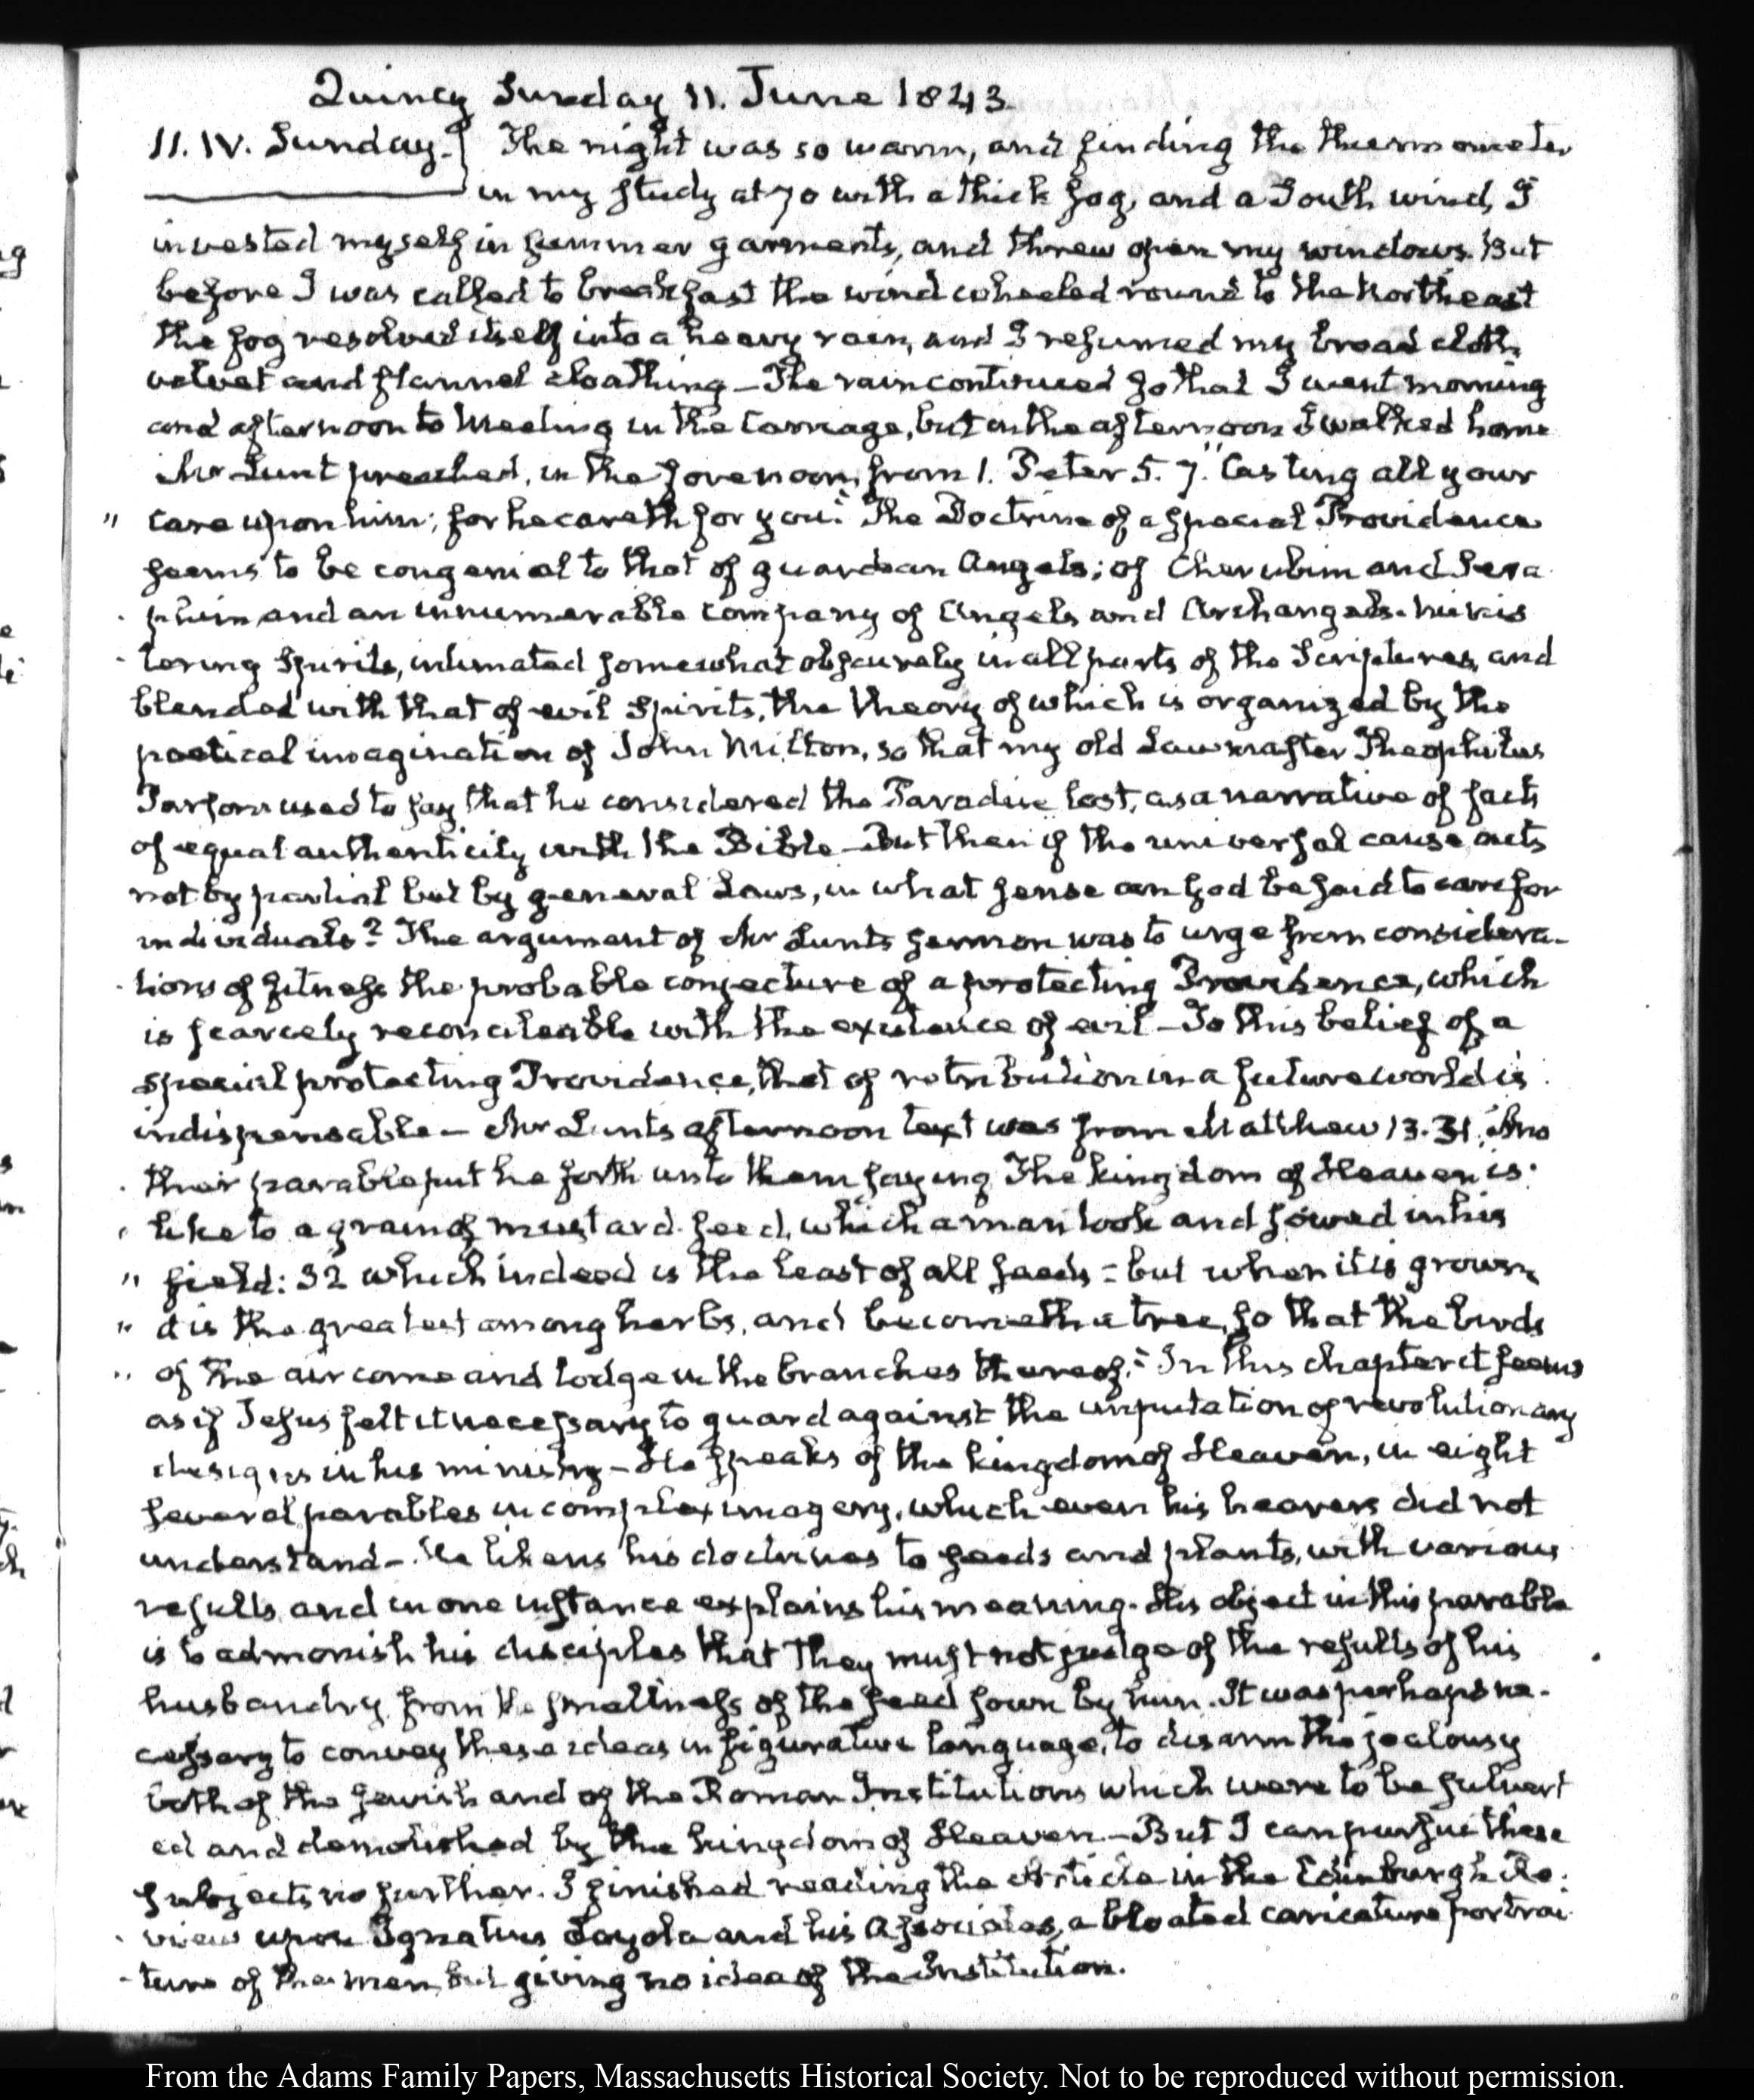 Quincy Sunday 11. June 1843
11. IV. Sunday.} The night was so warm, and finding the thermometer
in my study at 70 with a thick fog, and a South wind, I
invested myself in summer garments, and threw open my windows. But
before I was called to breakfast the wind wheeled round to the Northeast
the fog resolved itself into a heavy rain, and I resumed my broad cloth,
velvet and flannel cloathing — The rain continued so that I went morning
and afternoon to Meeting in the Carriage, but in the afternoon I walked home
Mr Lunt preached, in the forenoon, from 1. Peter 5. 7. "Casting all your
" care upon him; for he careth for you." The Doctrine of a special Providence
seems to be congenial to that of guardian Angels; of Cherubim and Sera
phim and an innumerable company of Angels and Archangels. Minis
tering Spirits, intimated somewhat obscurely in all parts of the Scriptures, and
blended with that of evil Spirits, the theory of which is organized by the
poetical imagination of John Milton, so that my old Law master Theophilus
Parsons used to say that he considered the Paradise lost, as a narrative of facts
of equal authenticity with the Bible — But then if the universal cause acts
not by partial but by general Laws, in what sense can God be said to care for
individuals? The argument of Mr Lunts sermon was to urge from considera-
tions of fitness the probable conjecture of a protecting Providence, which
is scarcely reconcileable with the existence of evil — To this belief of a
special protecting Providence, that of retribution in a future world is
indispensable — Mr Lunts afternoon text was from Matthew 13. 31. "Ano
ther parable put he forth unto them saying The kingdom of Heaven is
" like to a grain of mustard seed, which a man took and sowed in his
" field: 32 which indeed is the least of all seeds: but when it is grown
" it is the greatest among herbs, and becometh a tree, so that the birds
" of the air come and lodge in the branches thereof." In this chapter it seems
as if Jesus felt it necessary to guard against the imputation of revolutionary
designs in his ministry — He speaks of the kingdom of Heaven, in eight
several parables in complex imagery, which even his hearers did not
understand — He likens his doctrines to seeds and plants, with various
results and in one instance explains his meaning. His object in this parable
is to admonish his disciples that they must not judge of the results of his
husbandry from the smallness of the seed sown by him. It was perhaps ne-
cessary to convey these ideas in figurative language, to disarm the jealousy
both of the Jewish and of the Roman Institutions which were to be subvert
ed and demolished by the kingdom of Heaven. — But I can pursue these
subjects no further. I finished reading the Article in the Edinburgh Re-
view upon Ignatius Loyola and his Associates, a bloated caricature portrai
ture of the men, but giving no idea of the Institution.
From the Adams Family Papers, Massachusetts Historical Society. Not to be reproduced without permission.